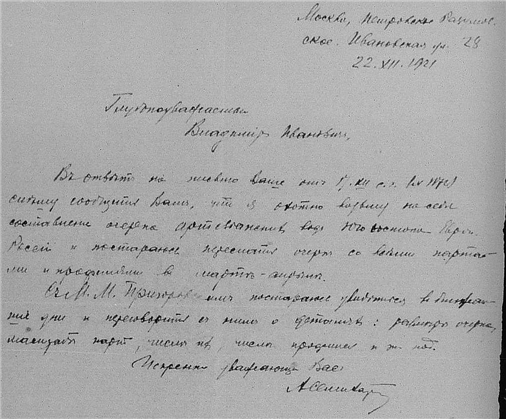 Москва, Петровское Разумов-
ское. Ивановская ул. 28
22.XII.1921
Глубокоуважаемый
Владимір Иванович,
Въ отвѣтъ на письмо Ваше отъ XII с.г.
спѣшу сообщить Вамъ, что я охотно возьму на себя
составление очерка артезианских водъ Юго-востока Евр.
России и постараюсь переслать очеркъ со всѣми карта-
ми и профилями в мартѣ-апрѣлѣ.
С М. М. постараюсь увидѣться в ближай-
шие дни и переговорить с нимъ о деталях: размѣръ очерка,
масштабъ карт, число их, число профилей и т. п.
Искренно уважающий Вас